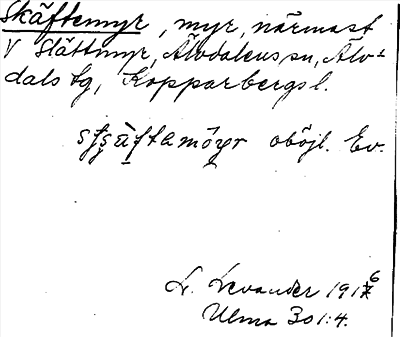 Skäftemyr, myr, närmast
V Slättmyr, Älvdalens sn, Älv-
dals tg, Kopparbergs l.
oböjl. Ev.
L. Levander 1916
Ulma 301:4.